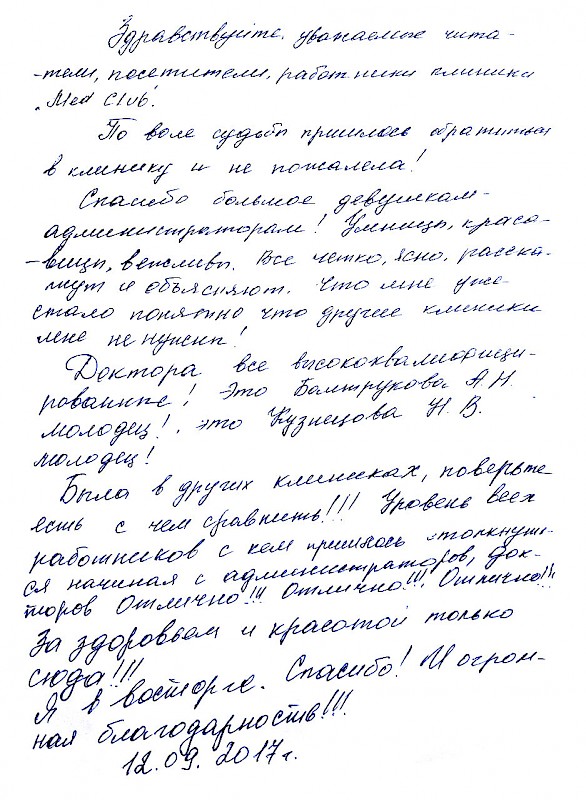 Здравствуйте, уважаемые чита-
-тели, посетители, работники клиники
"Med Club".
По воле судьбы пришлось обратиться
в клинику и не пожалела!
Спасибо большое девушкам-
администраторам! Умницы, краса-
-вицы, вежливы. Все четко, ясно, расска-
жут и объясняют. Что мне уже
стало понятно что другие клиники
мне не нужны!
Доктора все высококвалифици-
рованные! Это Балтрукова А.Н.
молодец!, это Кузнецова Н.В.
молодец!
Была в других клиниках, поверьте
есть с чем сравнить!!! Уровень всех
работников с кем пришлось столкнуть-
ся начиная с администраторов, док-
торов Отлично!!! Отлично!!! Отлично!!!
За здоровьем и красотой только
сюда!!!
Я в восторге. Спасибо! И огром-
ная благодарность!!!
12.09.2017г.